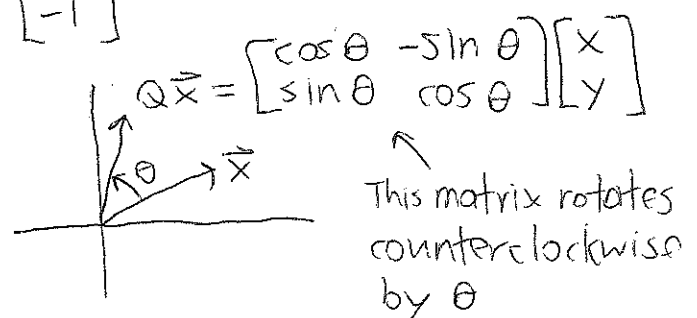 [-1]
Qx⃗ = [cos θ -sin θ] [x]
[sin θ cos θ] [y]
θ
x⃗
This matrix rotates
counterclockwise
by θ